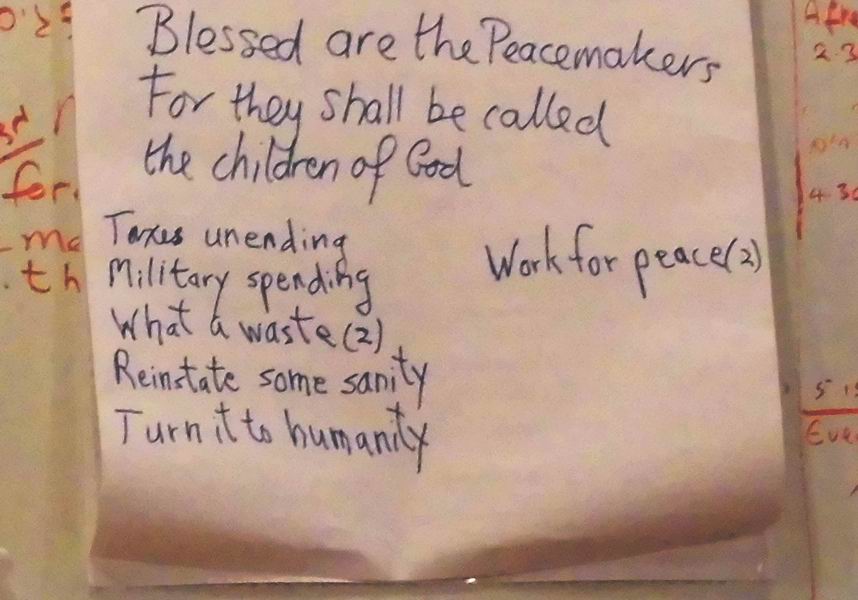 Blessed are the Peacemakers
For they shall be called
the children of God
Taxes unending
Military spending
What a waste (2)
Reinstate some sanity
Turn it to humanity
Work for peace (2)
for.
th
2.3
4.30